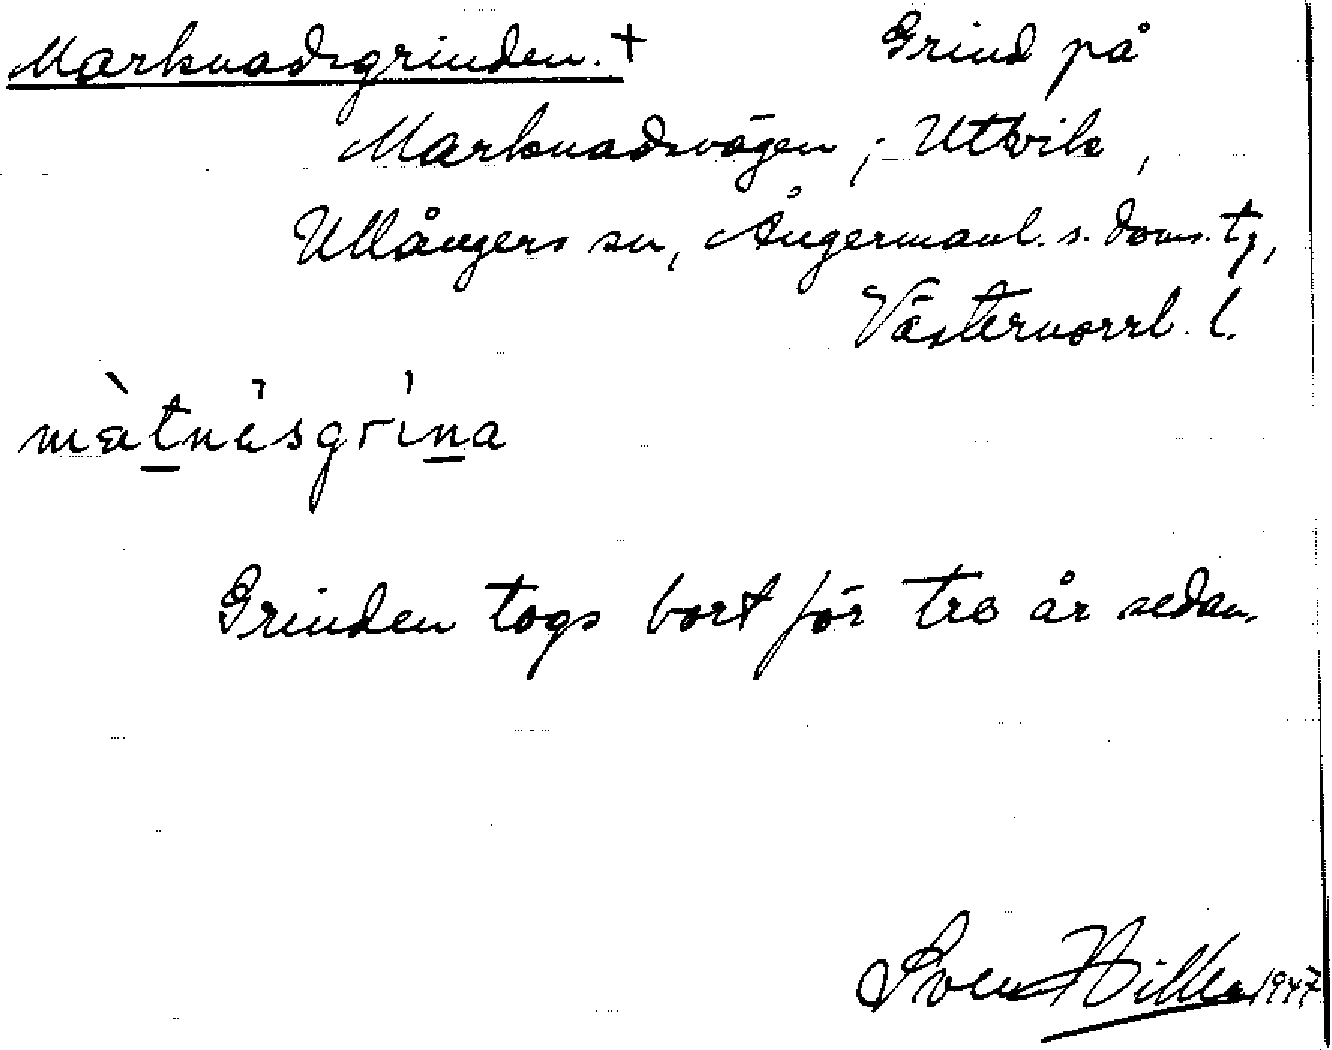 Marknadsgrinden. + Grind på
Marknadsvägen, Utvik,
Ullångers sn, Ångermanl. s. doms. tj,
Västernorrl. l.
màtnåsgrina
Grinden togs bort för tre år sedan.
Sven 1947